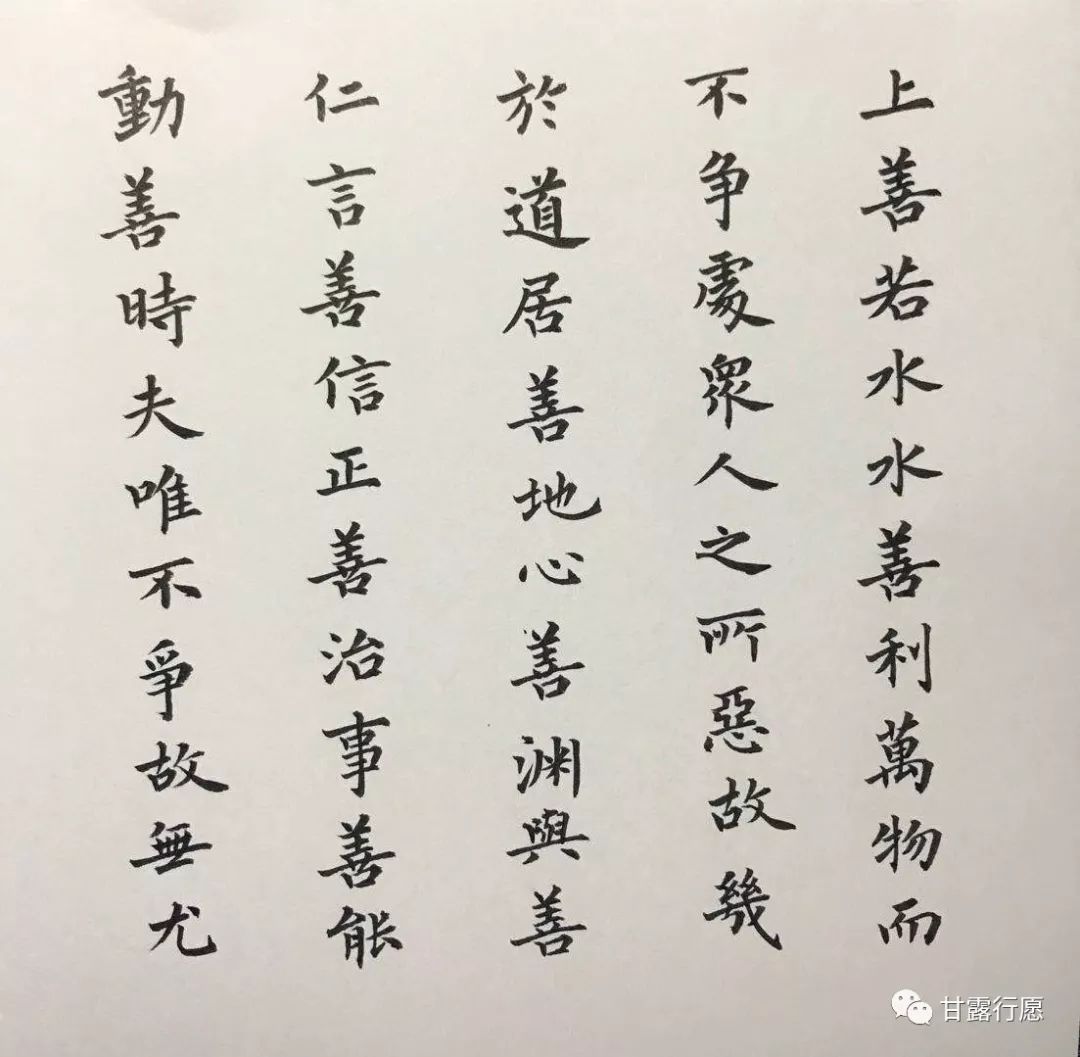 上善若水水善利萬物而
不争處眾人之所惡故幾
於道居善地心善渊與善
仁言善信正善治事善能
動善時夫唯不爭故無尤
甘露行愿